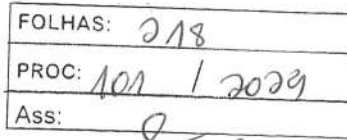 FOLHAS: 218
PROC: 101 / 2029
Ass: